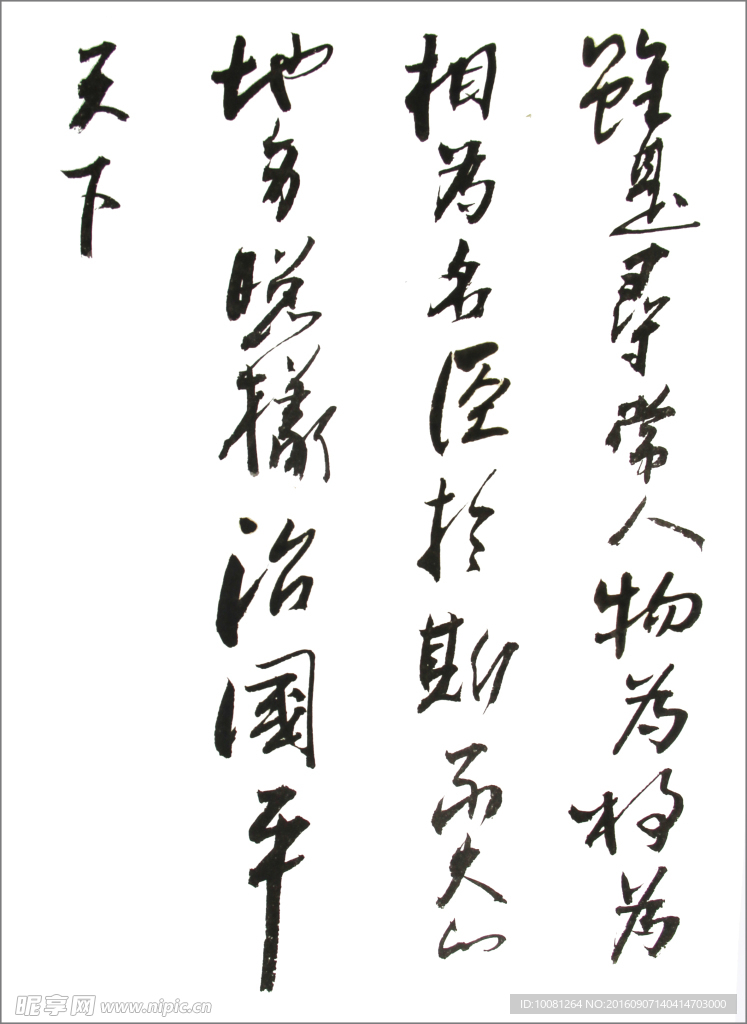 雖是尋常人物為將為
相為名臣於斯而大山
地 治國平
天下
昵享网 www.nipic.cn
ID:10081264 NO:20160907140414703000